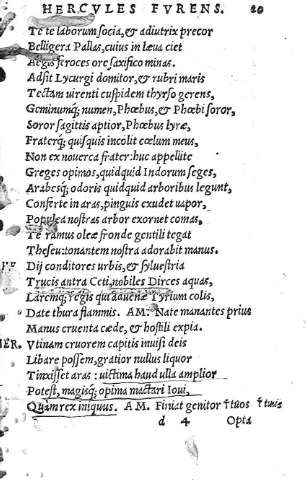 HERCVLES FVRENS. 20
Te te laborum socia, & adiutrix precor
Belligera Pallas, cuius in læua ciet
Aegis feroces ore saxifico minas.
Adsit Lycurgi domitor, & rubri maris
Tectam uirenti cuspidem thyrso gerens,
Geminumq; numen, Phœbus, & Phœbi soror,
Soror sagittis aptior, Phœbus lyræ,
Fraterq; quisquis incolit cœlum meus,
Non ex nouerca frater: huc appellite
Greges opimos, quidquid Indorum seges,
Arabesq; odoris quidquid arboribus legunt,
Conferte in aras, pinguis exudet uapor,
Populea nostras arbor exornet comas,
Te ramus oleæ fronde gentili tegat
Theseu: tonantem nostra adorabit manus.
Dij conditores urbis, & syluestria
Trucis antra nobiles Dirces aquas,
Laremq; regis Tyrium colis,
Date thura flammis. AM. Nate manantes prius
Manus cruenta cæde, & hostili expia.
HER. Vtinam cruorem capitis inuisi deis
Libare possem, gratior nullus liquor
Tinxisset aras: uictima haud ulla amplior
Potest, magisq; opima mactari Ioui,
Quàm rex iniquus. AM. Finiat genitor †tuos † tuus
d 4 Opta